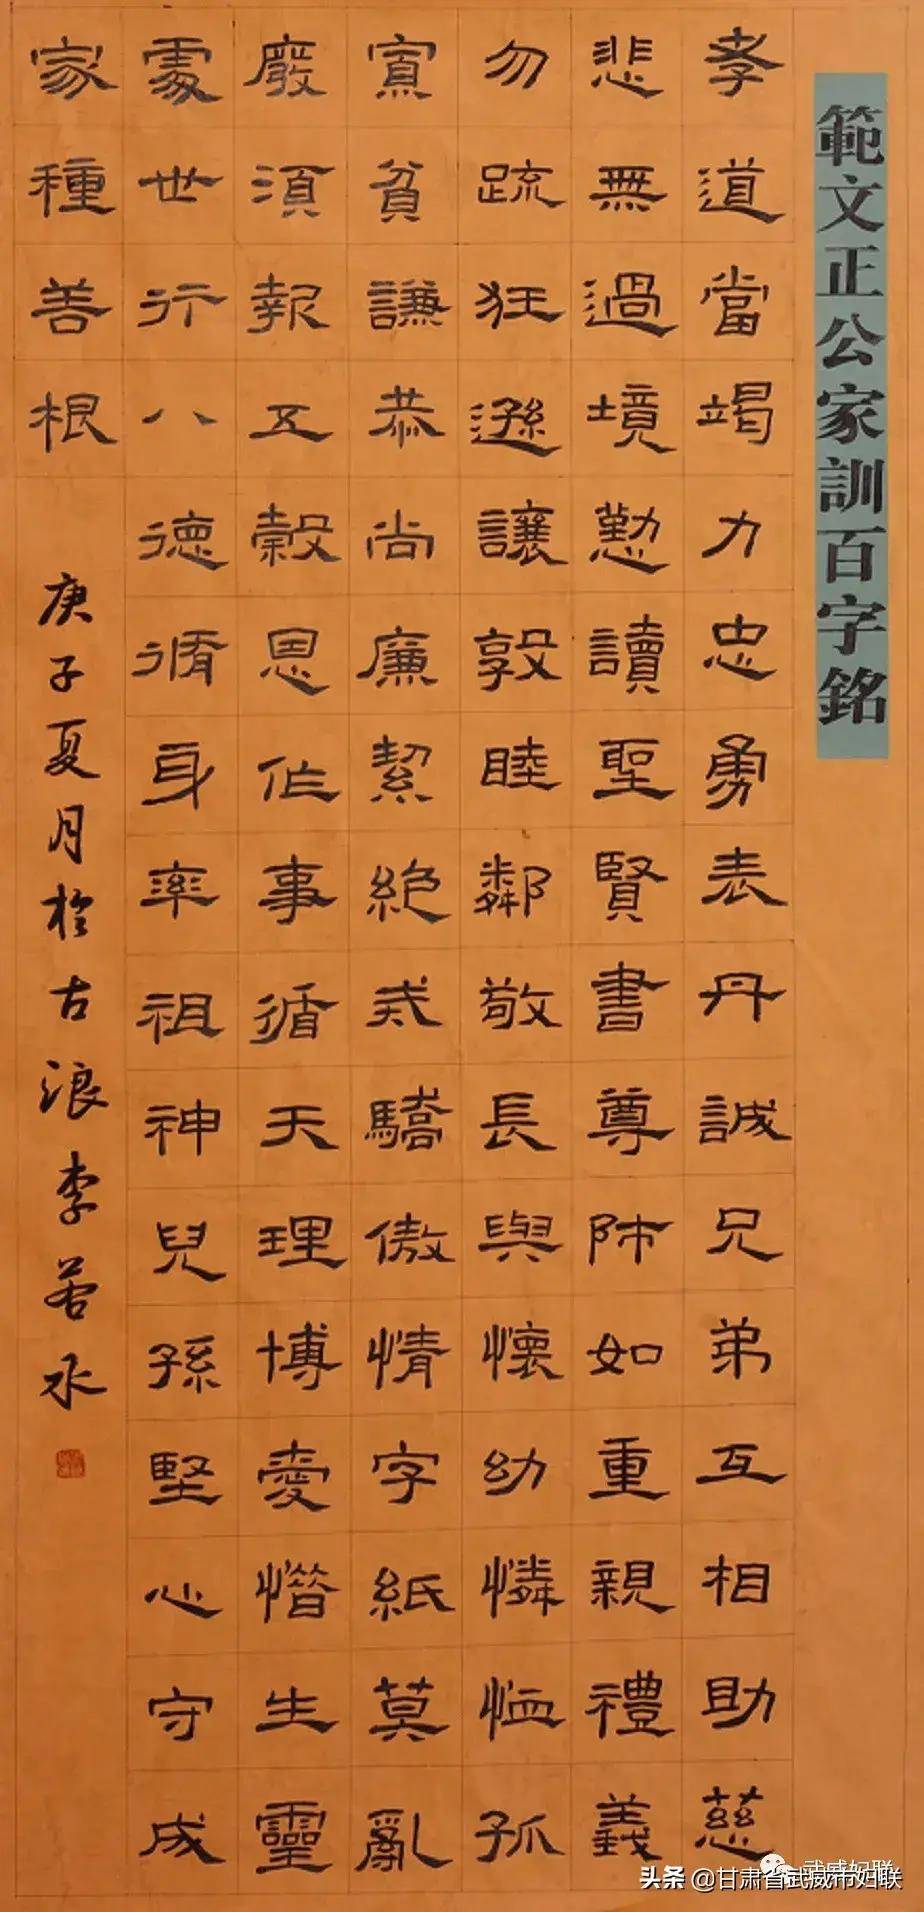 範文正公家訓百字銘
孝道當竭力忠勇表丹誠兄弟互相助慈
悲無過境勤讀聖賢書尊師如重親禮義
勿疏狂遜讓敦睦鄰敬長與懷幼憐恤孤
寡貧謙恭尚廉絜絕戒驕傲情字紙莫亂
廢須報五穀恩作事循天理博愛惜生靈
處世行八德脩身率祖神兒孫堅心守成
家種善根
庚子夏月於古浪李若水
武威妇联
头条 @甘肃省武威市妇联